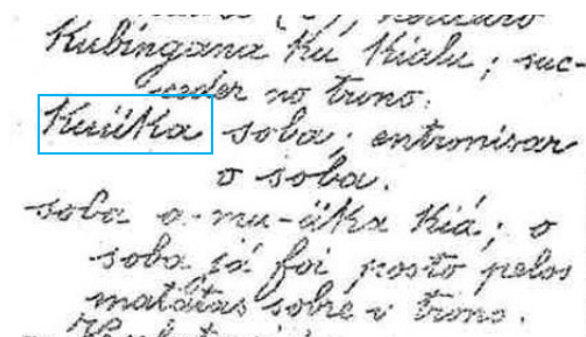 Kubingana ku kialu; suc-
ceder no trono.
Kuüka soba; entronisar
o soba.
soba a-mu-üka kiá; o
soba já foi posto pelos
matátas sobre o trono.